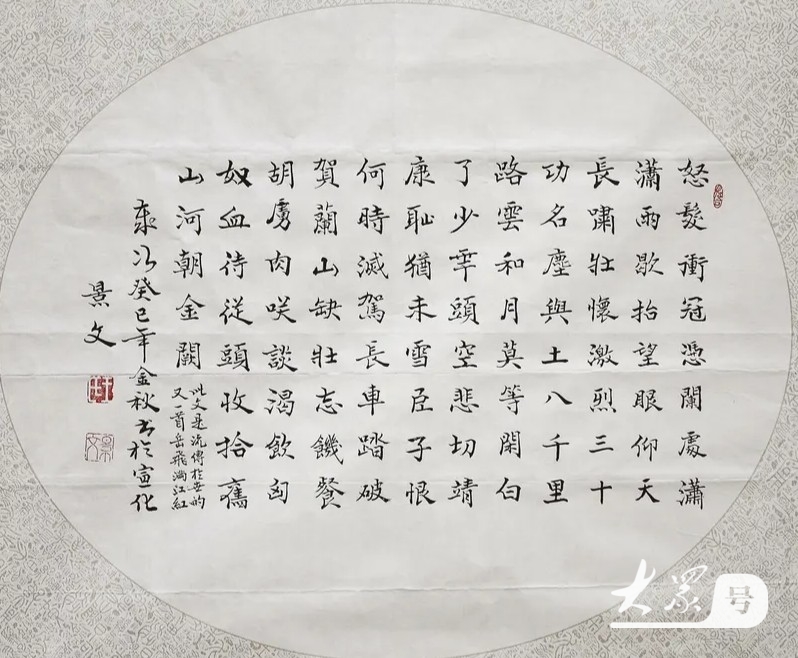 怒髮衝冠憑闌處瀟
瀟雨歇抬望眼仰天
長嘯壯懷激烈三十
功名塵與土八千里
路雲和月莫等閑白
了少年頭空悲切靖
康耻猶未雪臣子恨
何時滅駕長車踏破
賀蘭山缺壯志饑餐
胡虜肉咲談渴飲匈
奴血待從頭收拾舊
山河朝金闕
此文是流傳於世的
又一首岳飛滿江紅
歲次癸巳年金秋书於宣化
景文
大眾号